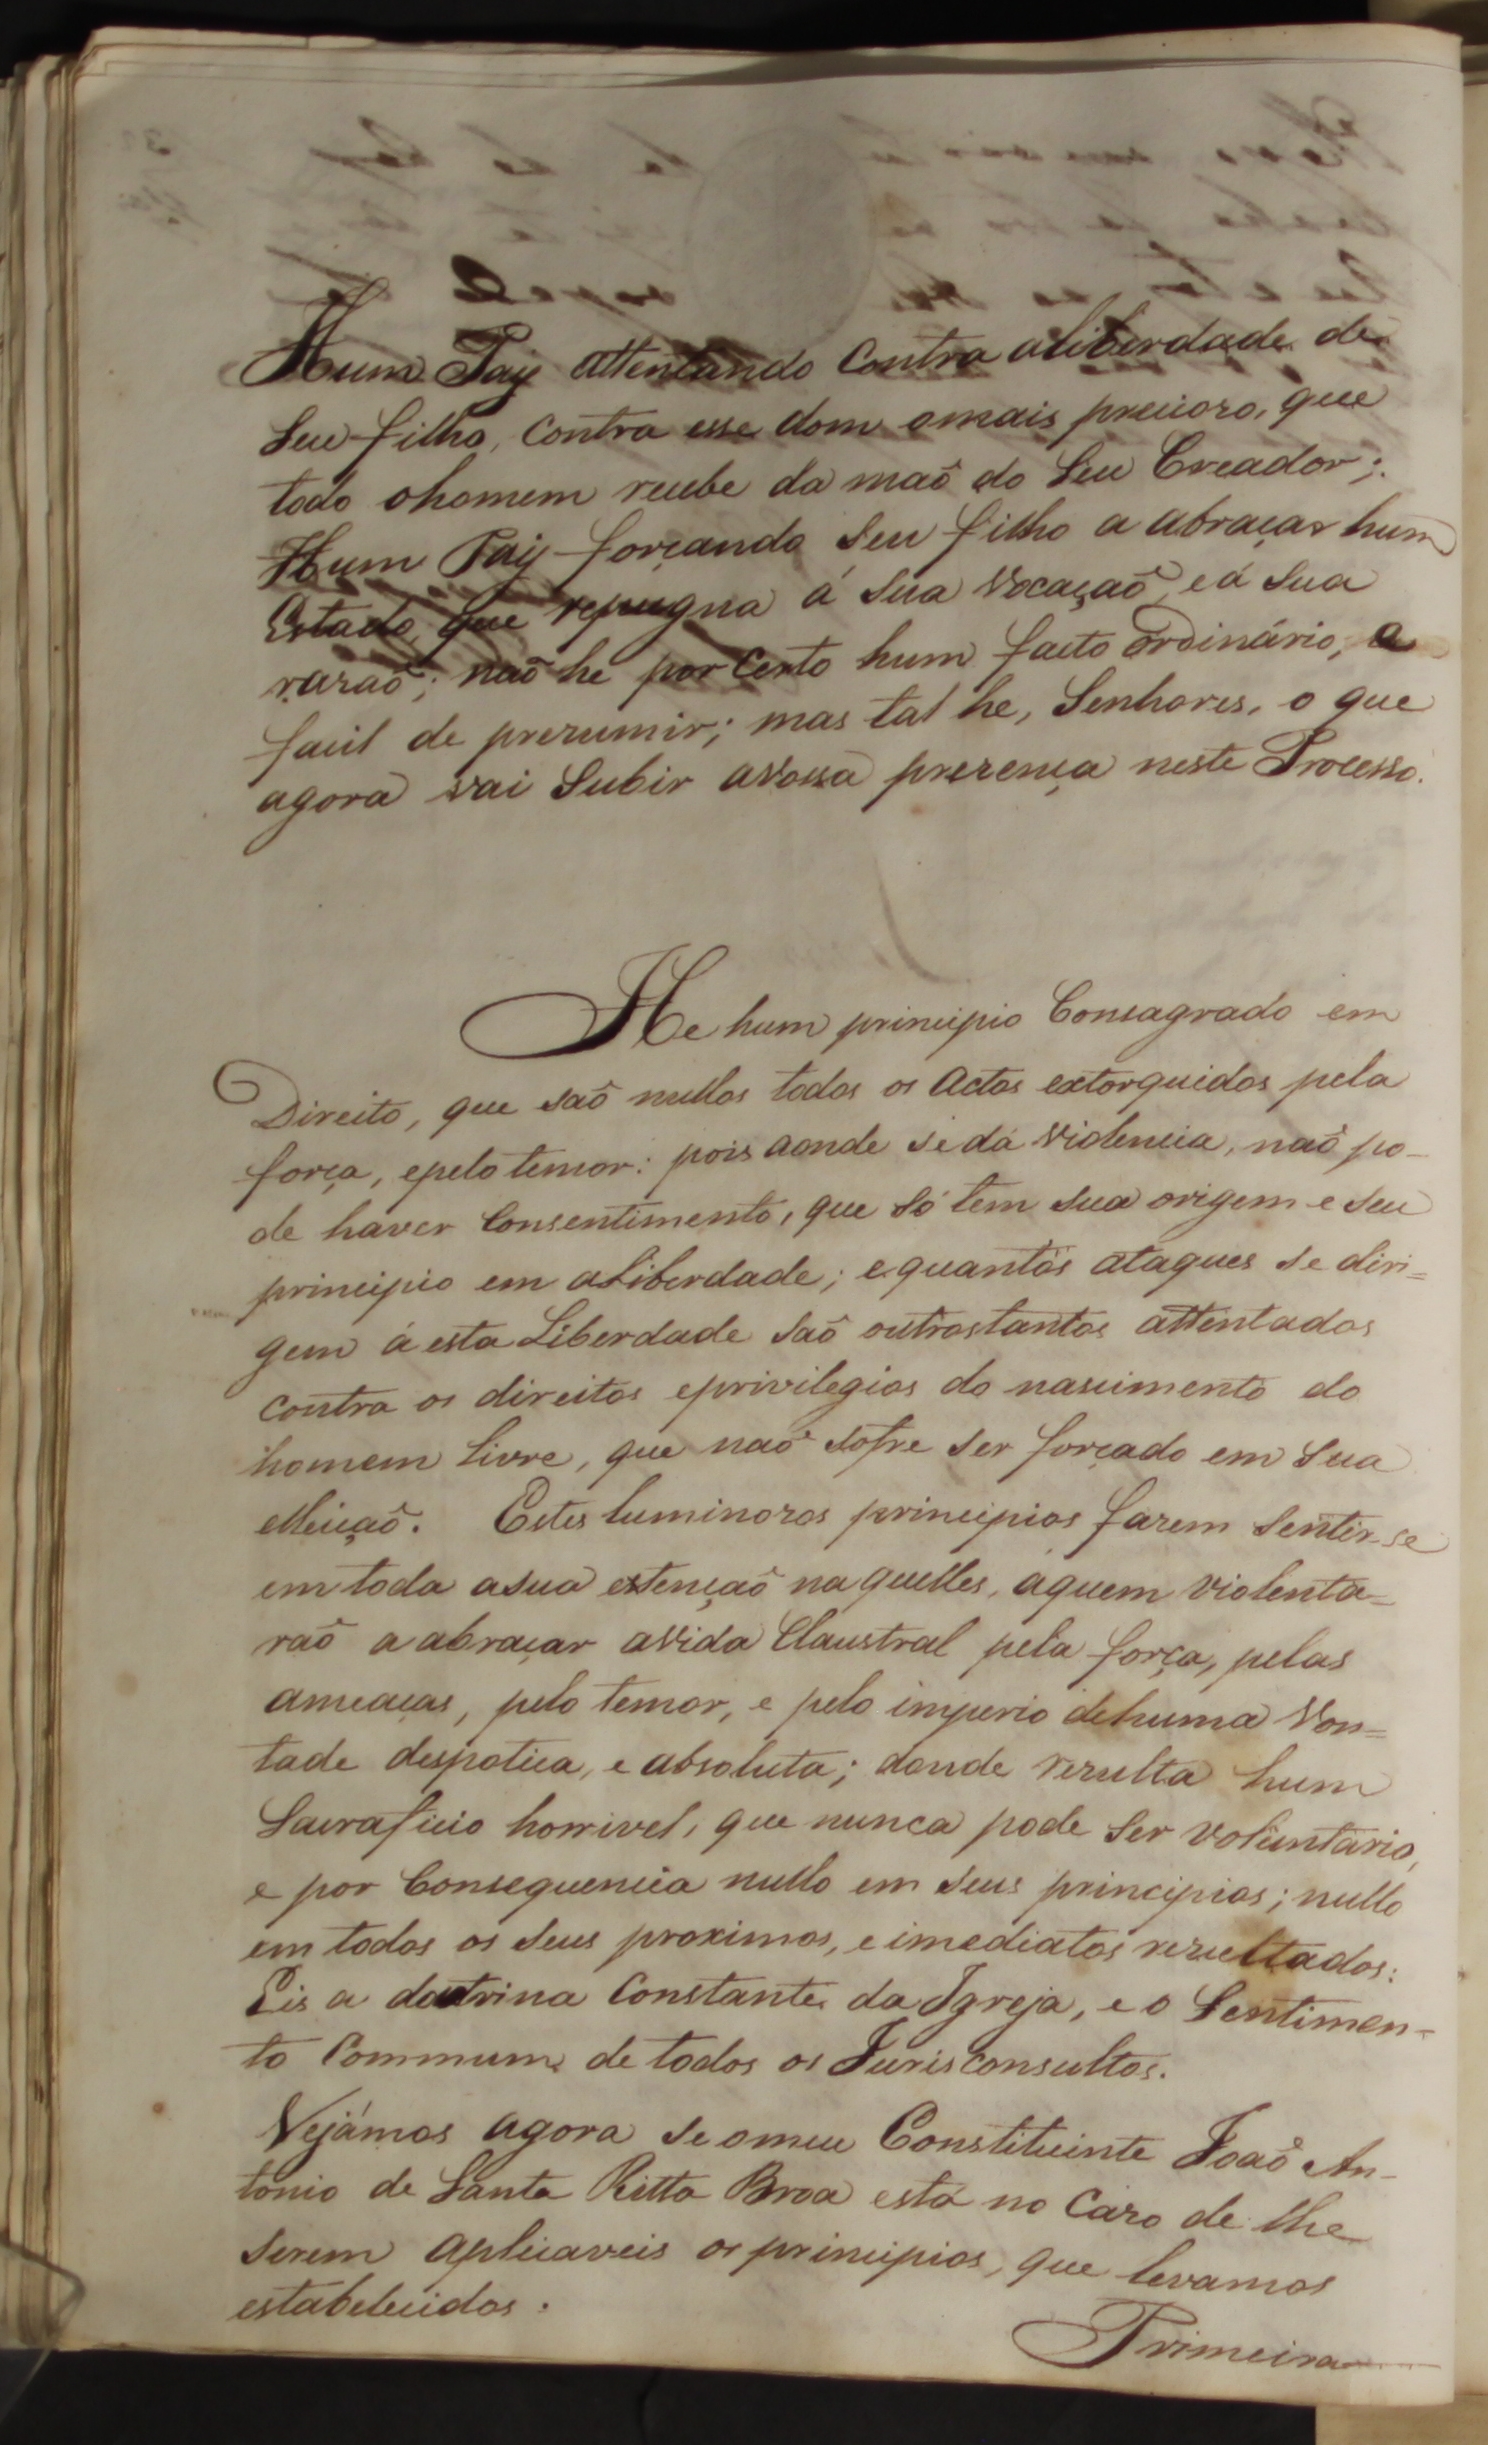 Hum Pay attentando Contra aliberdade de
Seu filho, Contra esse dom omais precioso, que
todo ohomem recebe da maõ do Seu Creador;
Hum Pay forçando Seu filho a abraçar hum
Estado, que repugna á sua Vocaçaõ, eá Sua
razaõ; naõ he por Certo hum facto ordinário, e
facil de prezumir; mas tal he, Senhores, o que
agora vai Subir avossa prezença neste Processo.
He hum principio Consagrado em
Direito, que saõ nullos todos os Actos extorquidos pela
força, epelo temor: pois aonde se dá Violencia, naõ po-
de haver Consentimento, que Só tem sua origem e seu
principio em aLiberdade; equantos ataques se diri=
gem á esta Liberdade Saõ outrostantos attentados
contra os direitos eprivilegios do nascimento do
homem Livre, que naõ sofre ser forçado em Sua
elleiçaõ. Estes luminozos principios fazem Sentir-se
em toda asua extençaõ na quelles, aquem violenta-
raõ a abraçar avida Claustral pela força, pelas
ameaças, pelo temor, e pelo imperio dehuma Von=
tade despotica, e absoluta; donde rezulta hum
Sacraficio horrivel, que nunca pode Ser voluntario,
e por Consequencia nullo em seus principios; nullo
em todos os Seus proximos, e imediatos rezultados:
Eis a doutrina Constante da Igreja, e o Sentimen-
to Commum de todos os Jurisconsultos.
Vejámos agora se omeu Constituinte Joaõ An-
tonio de Santa Ritta Broa está no Cazo de lhe
serem aplicaveis os principios, que levamos
estabelecidos.
Primeira